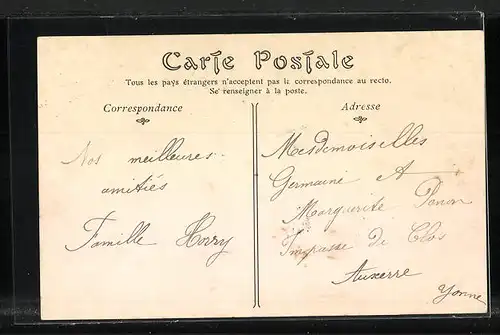 Carte Postale
Tous les pays étrangers n'acceptent pas la correspondance au recto.
Se renseigner à la poste.
Correspondance
Nos meilleures
amitiés
Famille Horry
Adresse
Mesdemoiselles
Germaine et
Marguerite
Impasse du Clos
Auxerre
Yonne